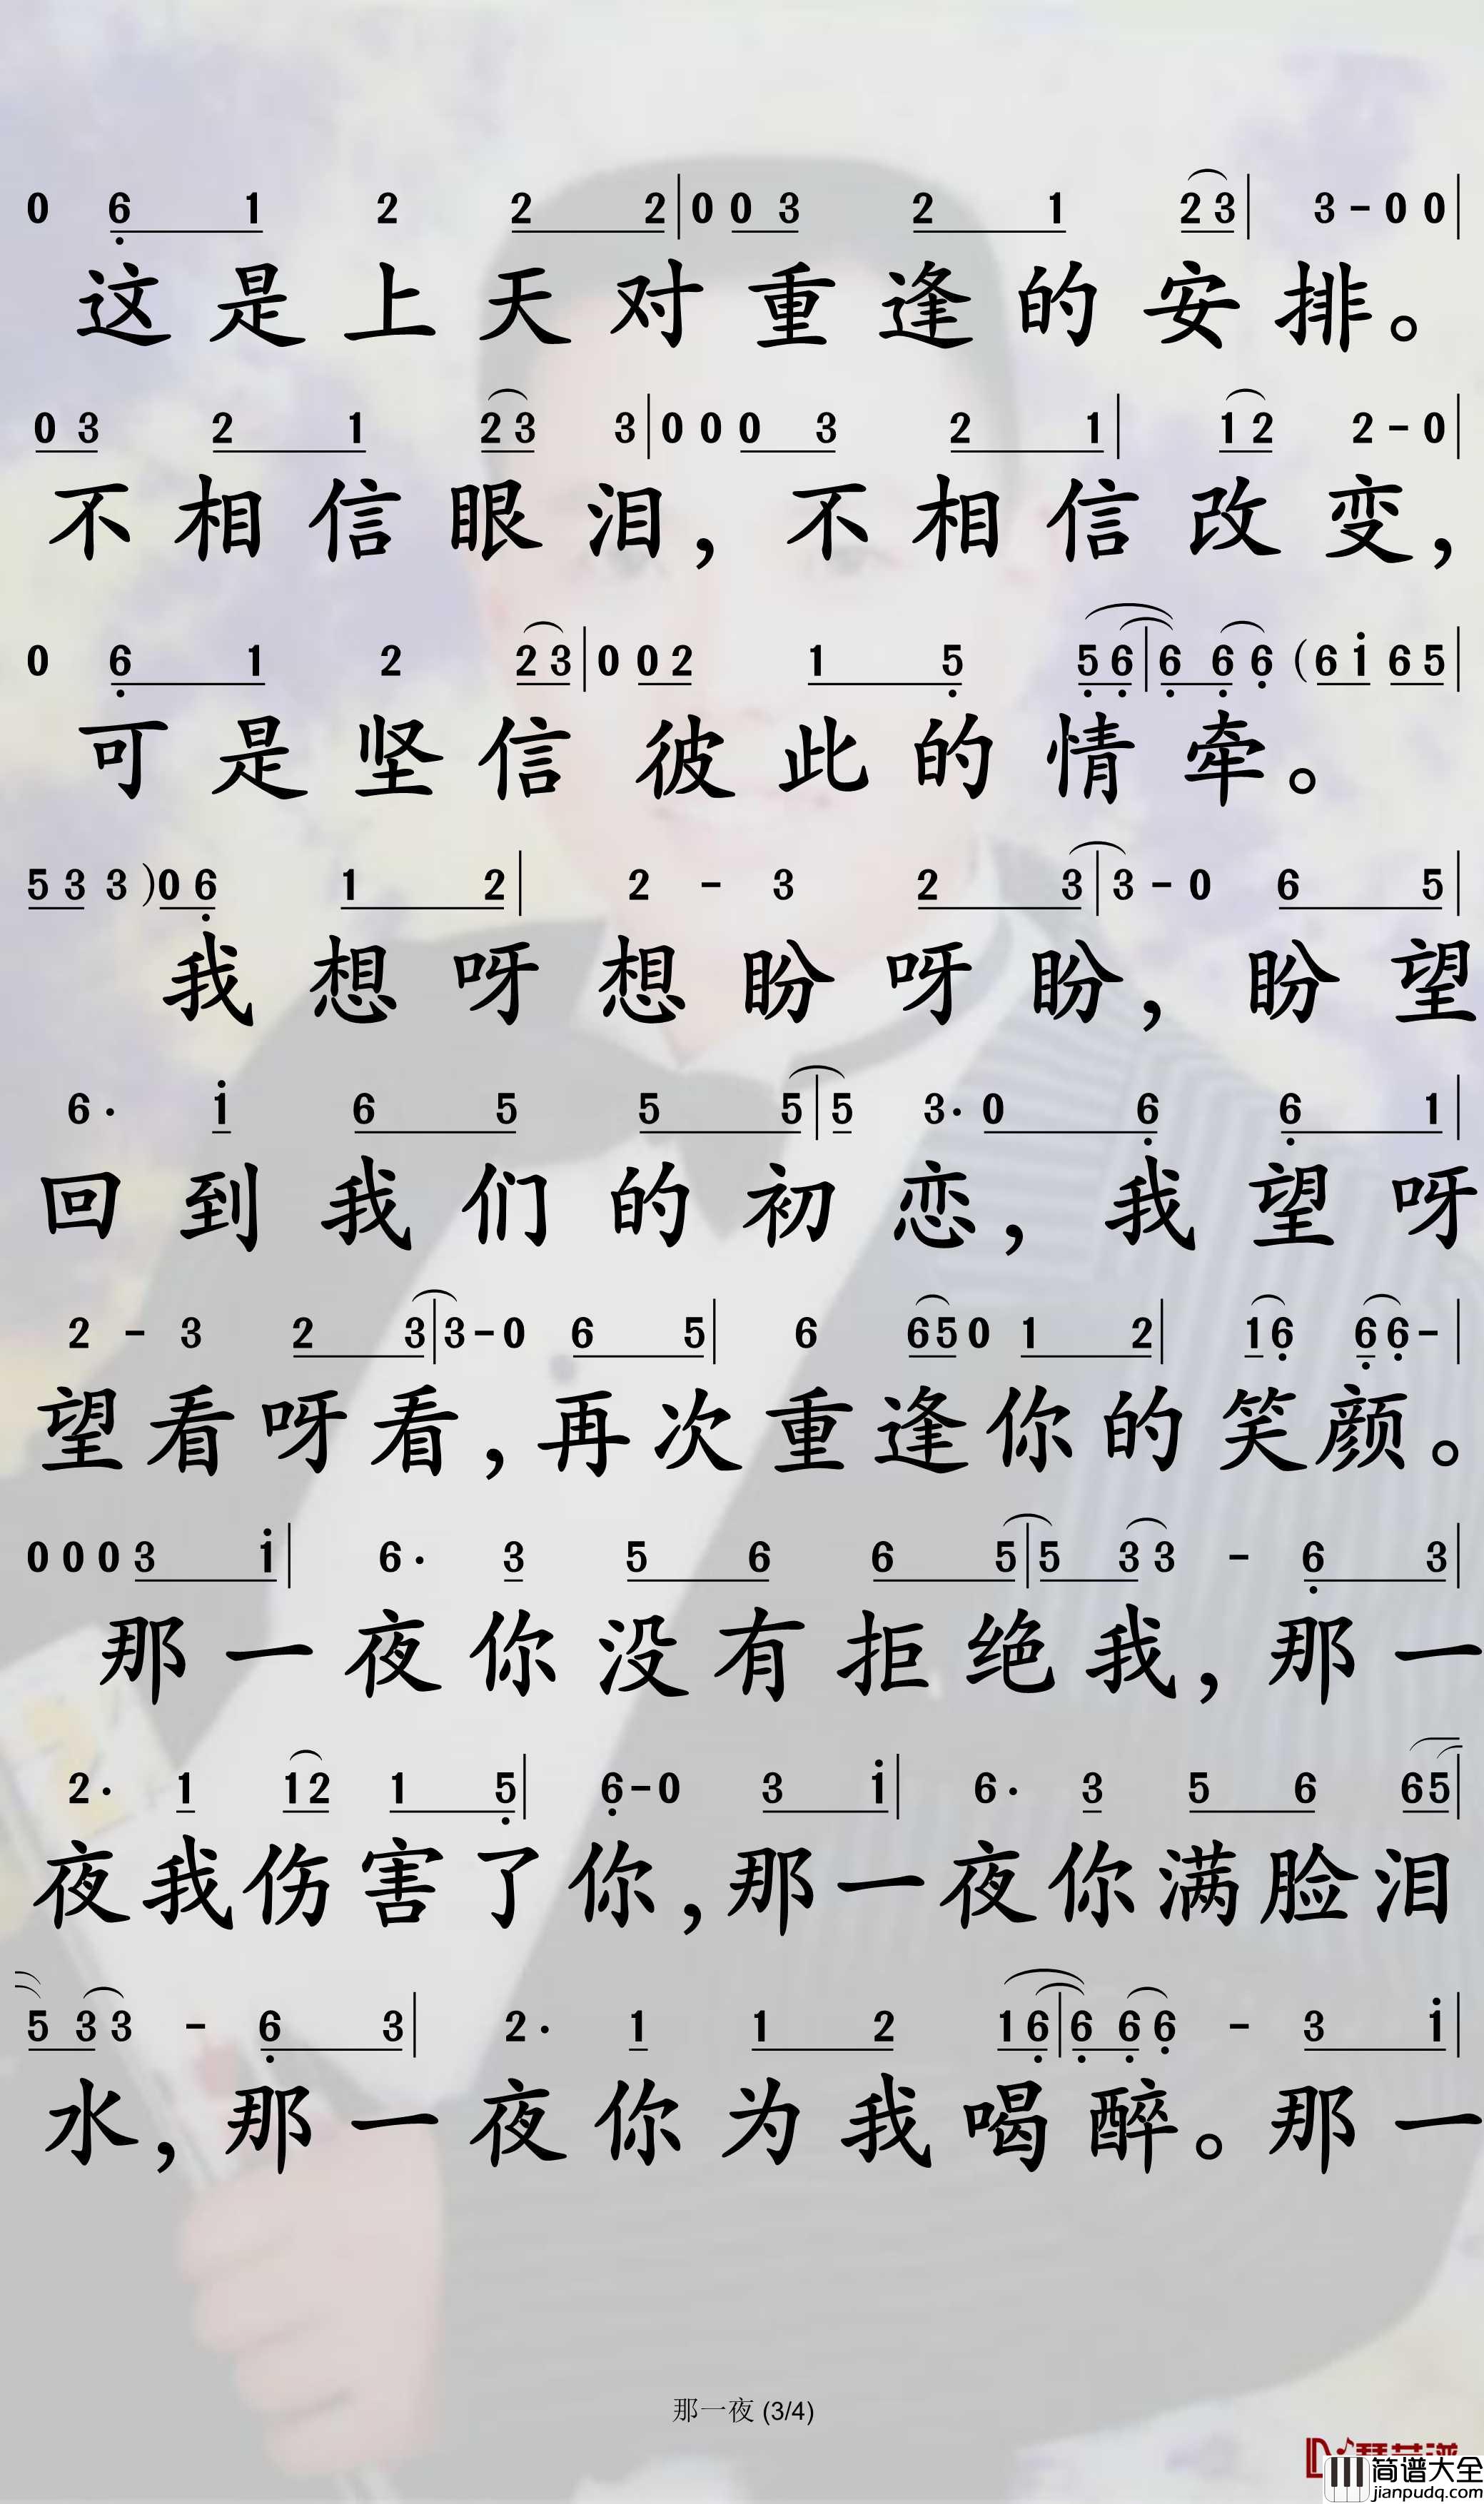 0 6 1 2 2 2 | 0 0 3 2 1 2 3 | 3 - 0 0 |
这是上天对重逢的安排。
0 3 2 1 2 3 3 | 0 0 0 3 2 1 | 1 2 2 - 0 |
不相信眼泪，不相信改变，
0 6 1 2 2 3 | 0 0 2 1 5 5 6 | 6 6 6 (6 i 6 5 |
可是坚信彼此的情牵。
5 3 3 ) 0 6 1 2 | 2 - 3 2 3 | 3 - 0 6 5 |
我想呀想盼呀盼，盼望
6 · i 6 5 5 5 | 5 3 · 0 6 6 1 |
回到我们的初恋，我望呀
2 - 3 2 3 | 3 - 0 6 5 | 6 6 5 0 1 2 | 1 6 6 6 - |
望看呀看，再次重逢你的笑颜。
0 0 0 3 i | 6 · 3 5 6 6 5 | 5 3 3 - 6 3 |
那一夜你没有拒绝我，那一
2 · 1 1 2 1 5 | 6 - 0 3 i | 6 · 3 5 6 6 5 |
夜我伤害了你，那一夜你满脸泪
5 3 3 - 6 3 | 2 · 1 1 2 1 6 | 6 6 6 - 3 i |
水，那一夜你为我喝醉。那一
那一夜 (3/4)
简谱大全
jianpudq.com